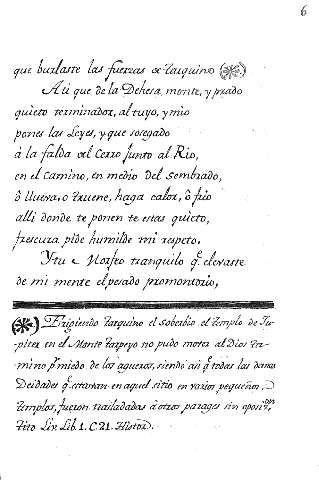 6
que burlaste las fuerzas de tarquino (*)
A ti que de la Dehesa, monte, y prado
quieto terminador, al tuyo, y mio
pones las Leyes, y que sosegado
à la falda del Cerro junto al Rio,
en el camino, en medio del sembrado,
ô llueva, o truene, haga calor, ô frio
alli donde te ponen te estas quieto,
frescura pide humilde mi respeto.
Y tu ò Morfeo tranquilo q.e elevaste
de mi mente el pesado promontorio,
(*) Erigiendo tarquino el soberbio el templo de Ju-
piter en el Monte tarpeyo no pudo mover al Dios ter-
mino p.r miedo de los agueros, siendo asi q.e todas las demas
Deidades q.e estavan en aquel sitio en varios pequeños
templos, fueron trasladadas à otros parages sin oposi.on
Tito Liv. Lib. 1. C. 21. Histor.